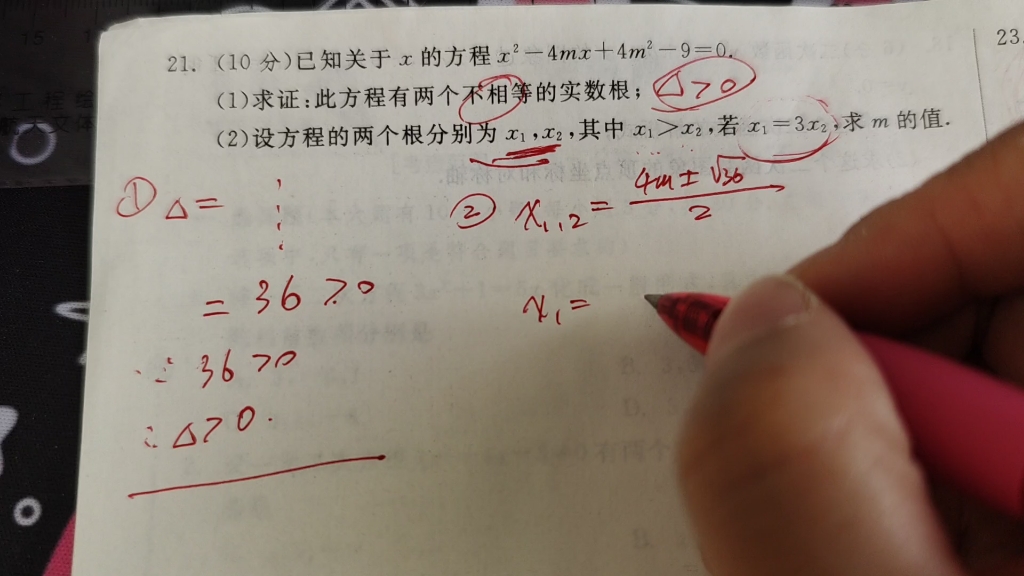 21. (10 分)已知关于 x 的方程 x²-4mx+4m²-9=0.
(1)求证:此方程有两个不相等的实数根; Δ>0
(2)设方程的两个根分别为 x₁,x₂,其中 x₁>x₂,若 x₁=3x₂,求 m 的值.
① Δ=
= 36 >0
∵ 36>0
∴ Δ>0.
② x₁,₂ = (4m±√36)/2
x₁=
23.
15